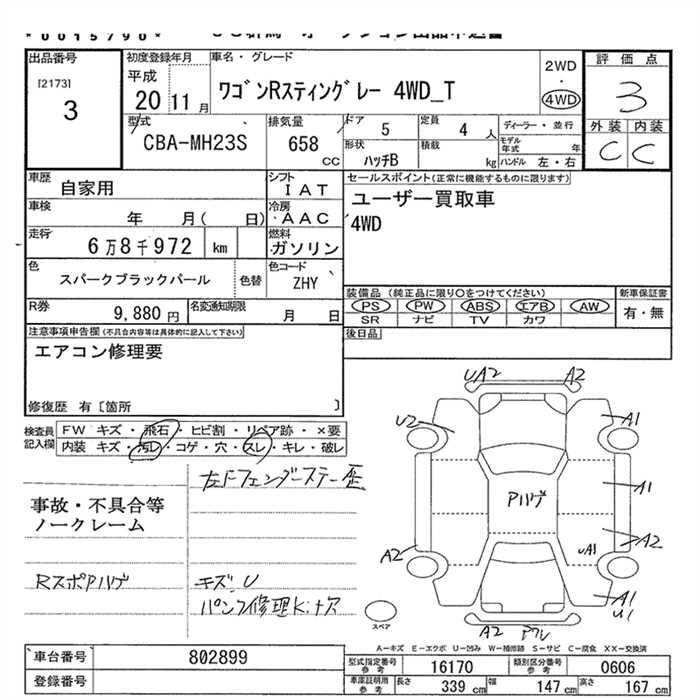 *0015790*
出品番号
[2173]
3
初度登録年月
平成
20 11月
車名・グレード
ワゴンRスティングレー 4WD_T
2WD
・
4WD
評価点
3
外装 内装
C C
型式
CBA-MH23S
排気量
658 cc
ドア 5
定員 4 人
形状 ハッチB
積載 kg
ディーラー・並行
モデル年式 年
ハンドル 左・右
車歴 自家用
シフト IAT
セールスポイント(正常に機能するものに限ります)
ユーザー買取車
4WD
車検 年 月( 日)
冷房 AAC
走行 6万8千972 km
燃料 ガソリン
色 スパークブラックパール 色替
色コード ZHY
装備品 (純正品に限り○をつけてください)
PS PW ABS エアB AW
SR ナビ TV カワ
新車保証書
有・無
R券 9,880 円
名変通知期限 月 日
後日品
注意事項申告欄(不具合内容等は具体的に記入して下さい)
エアコン修理要
修復歴 有〔箇所 〕
検査員記入欄
FW キズ・飛石・ヒビ割・リペア跡・×要
内装 キズ・汚レ・コゲ・穴・スレ・キレ・破レ
左Fフェンダーステー歪
事故・不具合等
ノークレーム
RスポPハゲ
キズ・U
パンク修理キット欠
UA2 A2
U2 A1
Pハゲ A1
A2 UA1 A2
A1
U1
A2
スペア
A-キズ E-エクボ U-凹み W-補修跡 S-サビ C-腐食 XX-交換済
車台番号 802899
登録番号
型式指定番号 参考 16170
類別区分番号 参考 0606
車庫証明用 参考 長さ 339 cm 幅 147 cm 高さ 167 cm